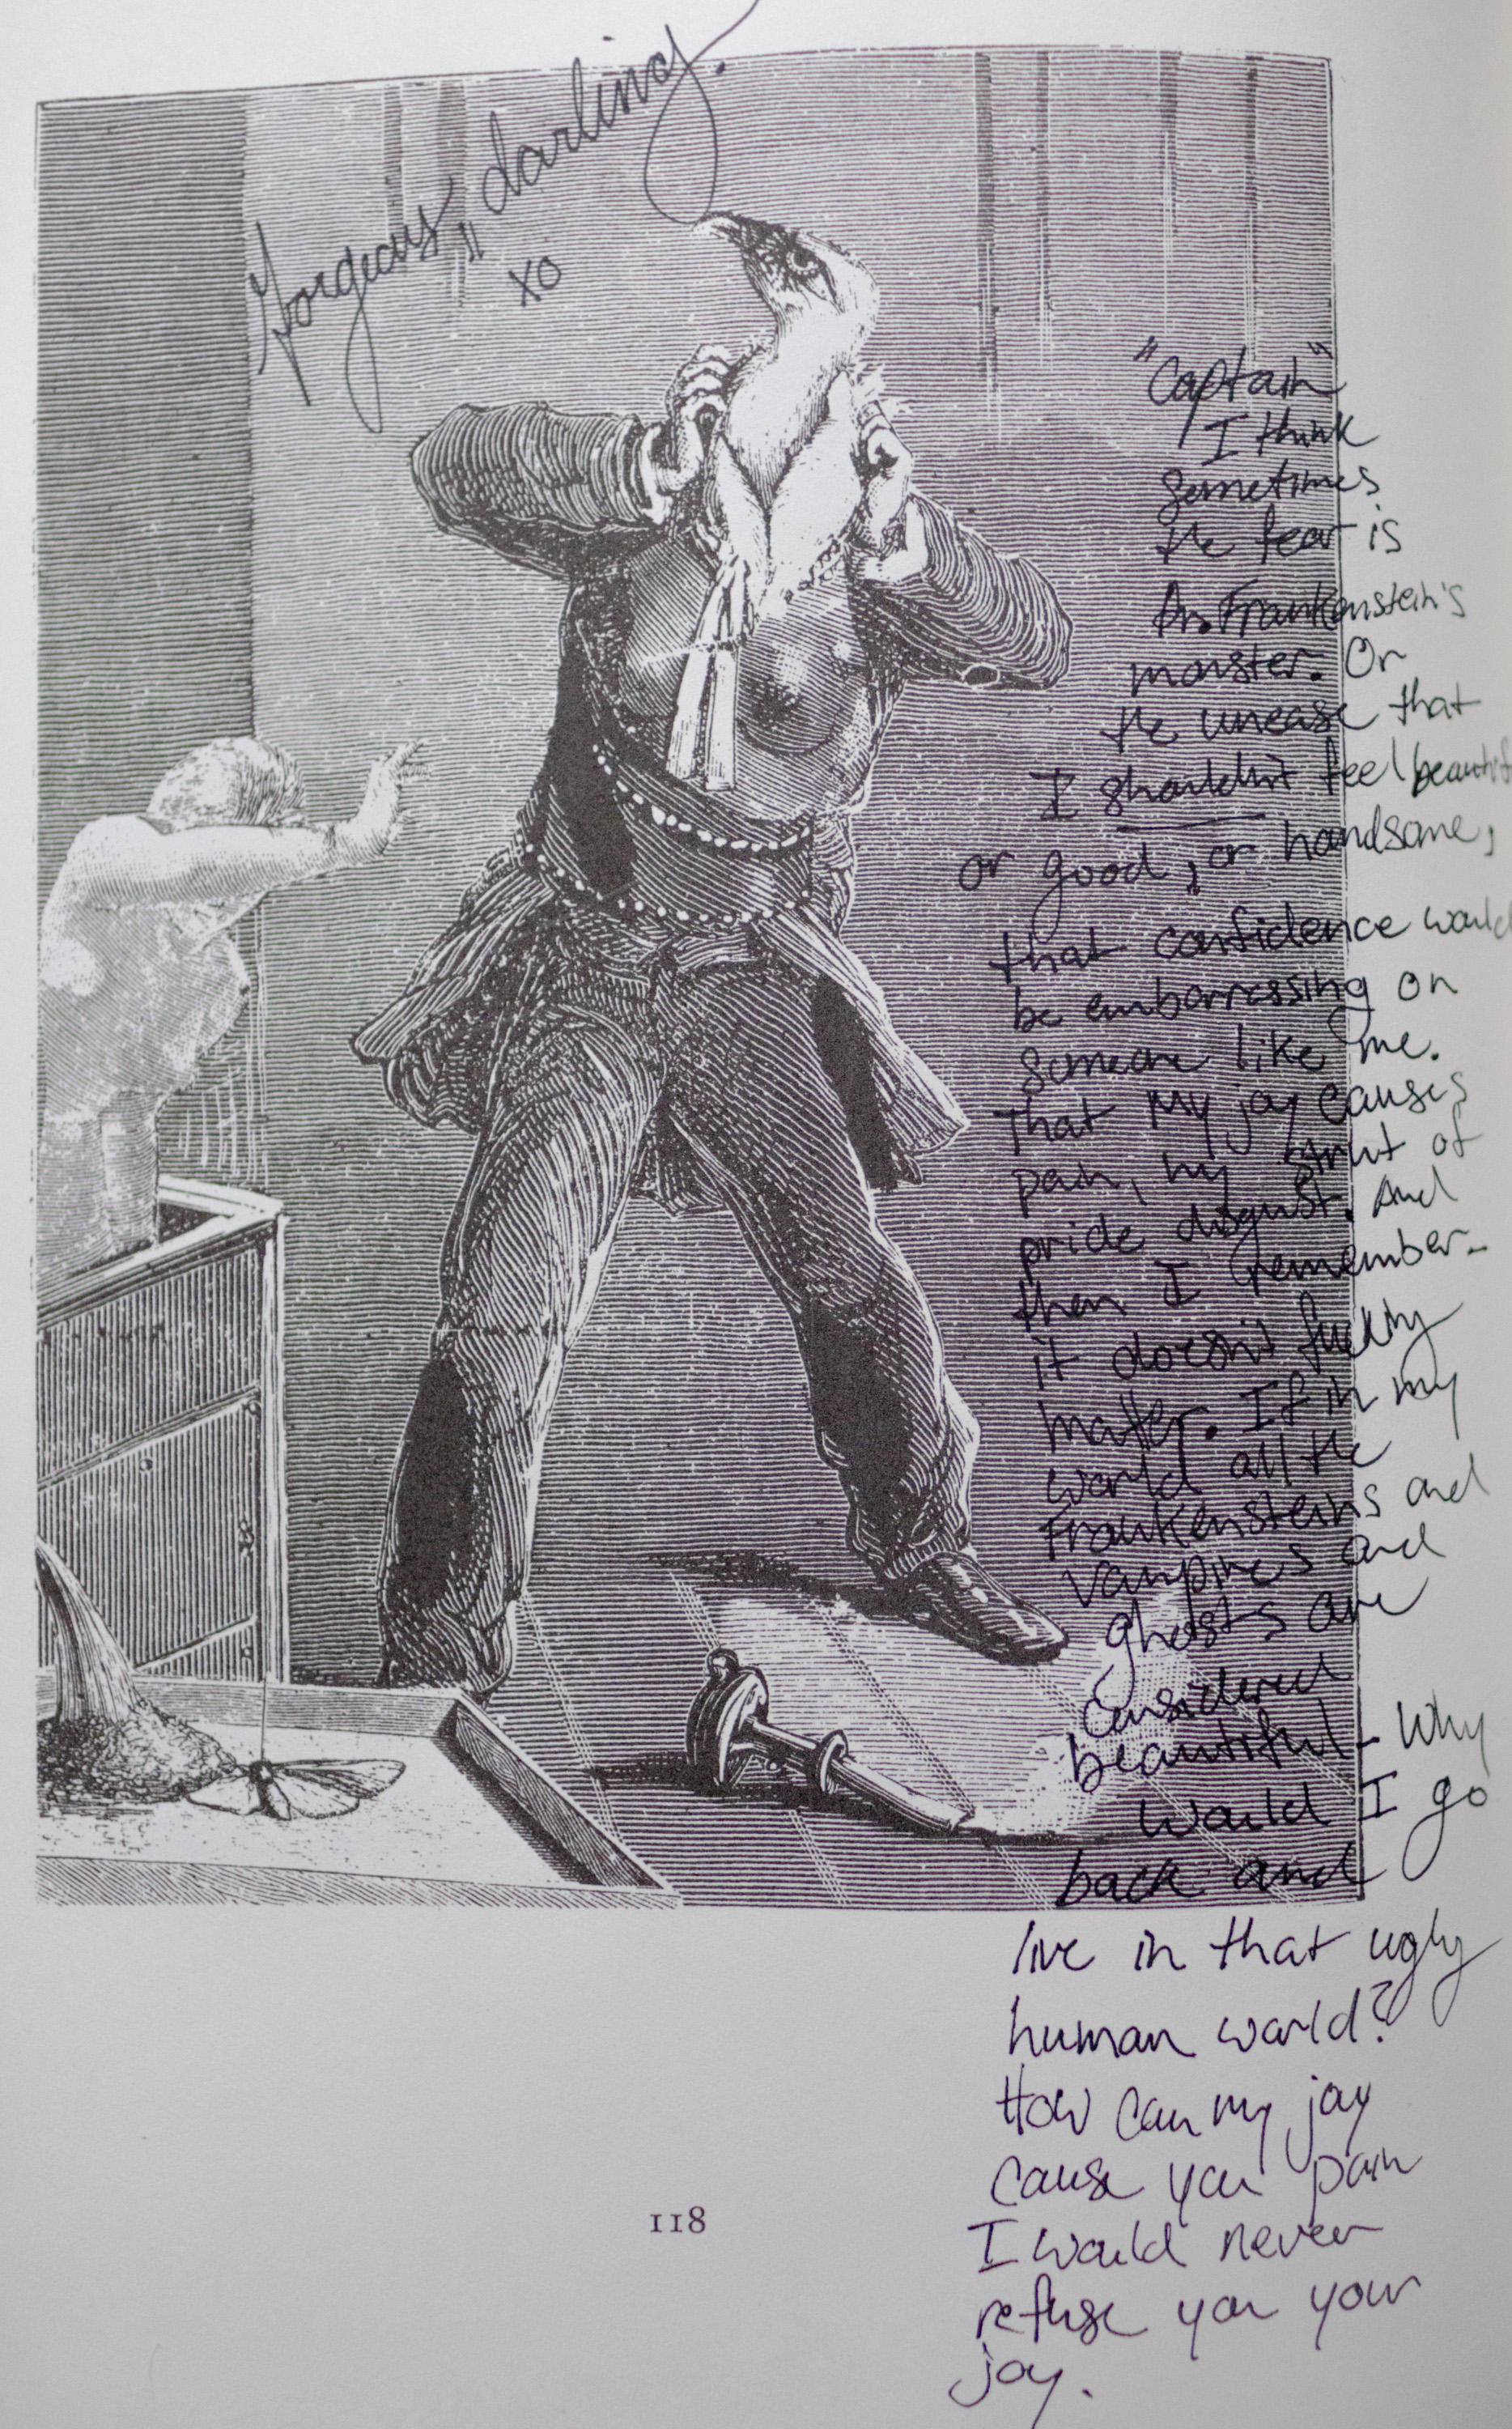 Gorgeous, darling.
xo
"Captain"
I think
sometimes
the fear is
Dr. Frankenstein's
monster. Or
the unease that
I shouldn't feel beautif
or good, or handsome,
that confidence would
be embarressing on
someone like me.
That my joy causes
pain, my strut of
pride disgust. And
then I remember-
it doesn't fucking
matter. If in my
world all the
Frankensteins and
vampires and
ghosts are
considered
beautiful - Why
would I go
back and
live in that ugly
human world?
How can my joy
cause you pain
I would never
refuse you your
joy.
118